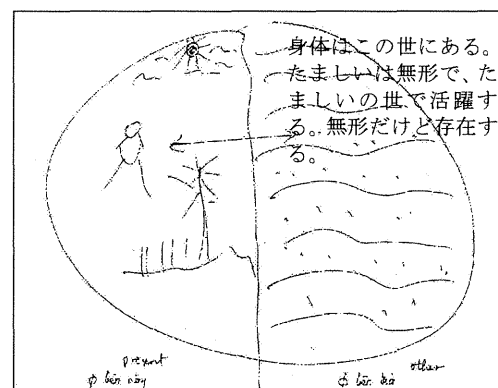 身体はこの世にある。
たましいは無形で、た
ましいの世で活躍す
る。無形だけど存在す
る。
present
other
ở bên này
ở bên kia